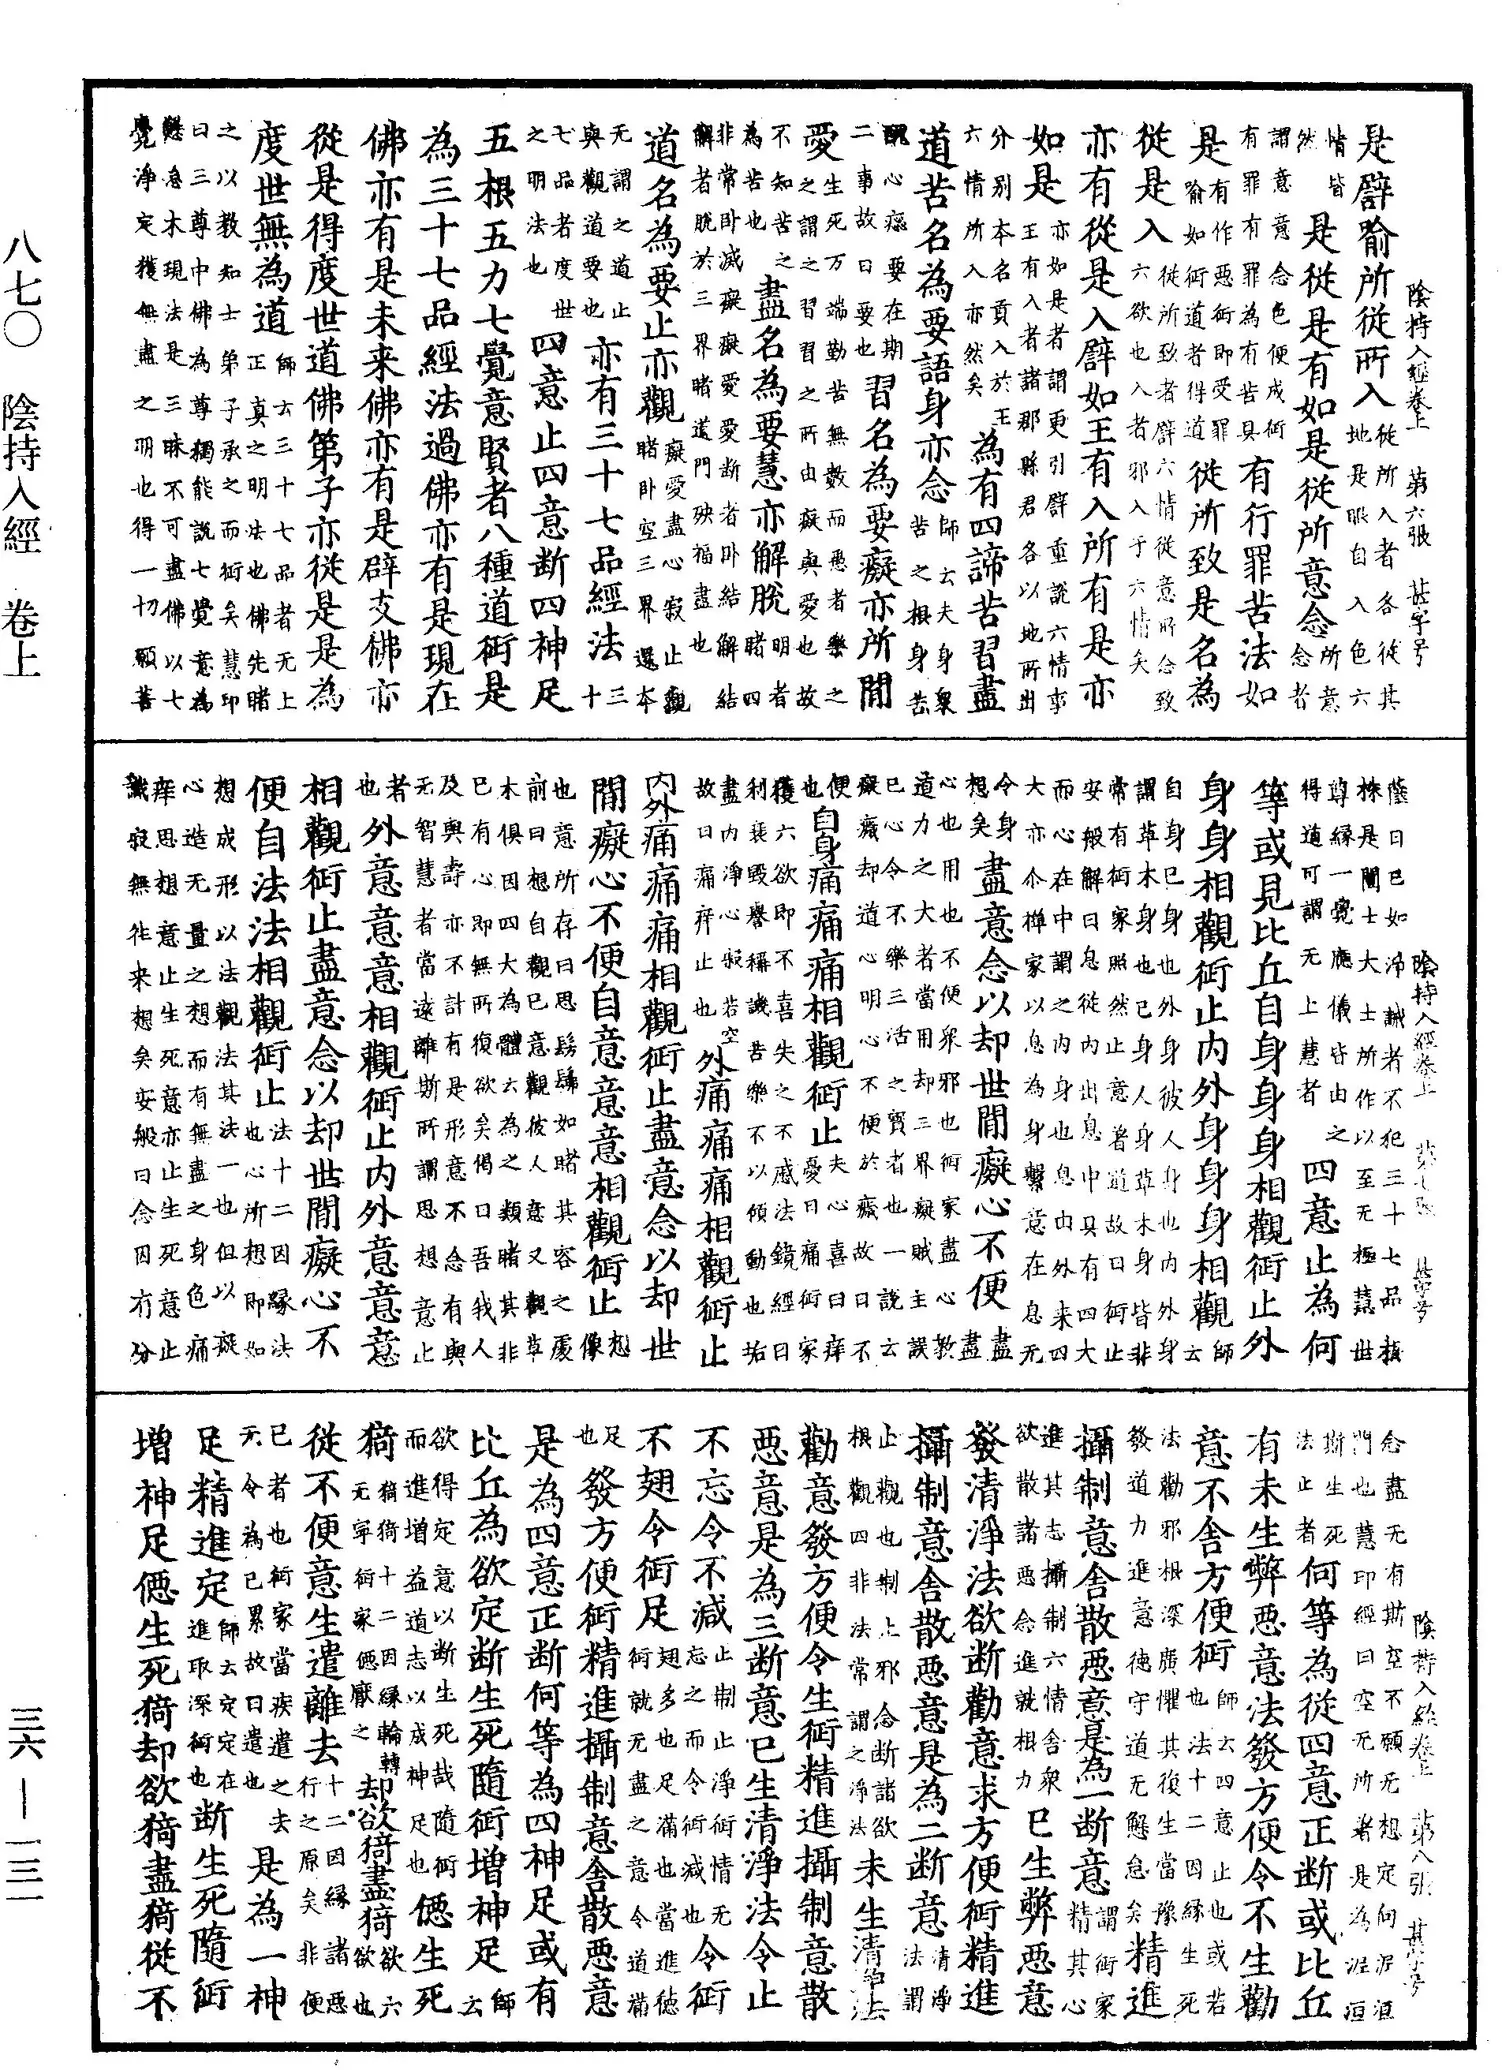 陰持入經卷上　第六張　甚字号
是譬喻所從所入從所入者各從其情皆地是眼自入色六
然是從是有如是從所意念所意念者
謂意意念色便成術有罪有罪為有苦具有行罪苦法如
是有作惡術即受罪喻如術道者得道從所致是名為
從是入從所致者譬六情從意所念致六欲也入者邪入于六情矣
亦有從是入譬如王有入所有是亦
如是亦如是者謂更引譬重說六情事王有入者諸郡縣君各以地所出
分別本名貢入於王六情所入亦然矣為有四諦苦習盡
道苦名為要語身亦念師云夫身衆苦之根身苦
醜心惡要在期二事故曰要也習名為要癡亦所閒
愛生死万端勤苦無數而愚者樂之之謂之習習之所由癡與愛也故
不知苦之為苦也盡名為要慧亦解脫明者睹四
非常卧滅癡愛愛断者卧結解結解者脫於三界睹道門殃福盡也
道名為要止亦觀癡愛盡心寂止觀睹卧空三界還本
无謂之道止與觀道要也亦有三十七品經法三十
七品者度世之明法也四意止四意断四神足
五根五力七覺意賢者八種道術是
為三十七品經法過佛亦有是現在
佛亦有是未来佛亦有是辟支佛亦
從是得度世道佛第子亦從是是為
度世無為道師云三十七品者无上正真之明法也佛先睹
之以教知士弟子承之而術矣慧印曰三尊中佛為尊獨能說七覺意為
懸急木現法是三昧不可盡佛以七覺淨定獲無盡之明也得一切願善
陰持入經卷上　第七張　甚字号
蔭日已如淨誡者不犯三十七品植株是闓士大士所作以至无極慧世
尊緣一覺應儀皆由之得道可謂无上慧者四意止為何
等或見比丘自身身身相觀術止外
身身相觀術止内外身身身相觀師云
自身已身也外身彼人身也内外身謂草木身也已身人身草木身皆非
常有術家照然止意着道故曰術止安般解曰息從内出息中具有四大
而心在中謂之内身也息由外来四大亦尒禅家以息為身繫意在息无
令身想矣盡意念以却世閒癡心不便盡盡
心也用也不便衆邪也術家盡心教道力之大者當用却三界癡賊主誤
已心令不樂三活之寶者也一說云癡癡却道心明心不便於癡故曰不
便也自身痛痛痛相觀術止夫心喜曰痒憂曰痛術家
獲六欲即不喜失之不慼法鏡經曰利衰毀譽稱譏苦樂不以傾動也垢
盡内淨心寂若空故曰痛痒止也外痛痛痛相觀術止
内外痛痛痛相觀術止盡意念以却世
閒癡心不便自意意意相觀術止想像
也意所存曰思髣髴如睹其容之處前曰想自觀已意觀彼人意又觀草
木俱因四大為體六為之類睹其非已有心即無所復欲矣偈曰吾我人
及與壽亦不計有是形意不念有與无智慧者當遠離斯所謂思想意止
者也外意意意相觀術止内外意意意
相觀術止盡意念以却世閒癡心不
便自法法法相觀術止法十二因緣法也心所想即如
想成形以法觀法其法一也但以癡心造无量之想而有無盡之身色痛
痒思想意止生死意亦止生死意止識寂無往来想矣安般曰念因有分
陰持入經卷上　第八張　甚字号
念盡无有斯空不願无想定向泥洹門也慧印經曰空无所著是為泥洹
斯生死法止者何等為從四意正断或比丘
有未生弊惡意法發方便令不生勸
意不舍方便術師云四意止也或若法十二因緣生死
法勸邪根深廣懼其復生當豫發道力進意德守道无懈怠矣精進
攝制意舍散惡意是為一断意謂術家精其心
進其志攝制六情舍衆欲散諸惡念進就相力已生弊惡意
發清淨法欲断勸意求方便術精進
攝制意舍散惡意是為二断意清淨法謂
止觀也制止邪念断諸欲根觀四非法常謂之淨法未生清淨法
勸意發方便令生術精進攝制意散
惡意是為三断意已生清淨法令止
不忘令不減止制止淨術情无忘之而令術減也令術
不翅令術足翅多也足滿也當進德術就无盡之意令道備
足也發方便術精進攝制意舍散惡意
是為四意正断何等為四神足或有
比丘為欲定断生死隨術增神足師云
欲得定意以断生死哉隨術而進增益道志以成神足也僫生死
猗猗猗十二因緣輪轉无寧術家僫厭之却欲猗盡猗欲六欲也
從不便意生遣離去十二因緣諸惡行之原矣非便
已者也術家當疾遣之去无令為已累故曰遣也是為一神
足精進定師云定定在進取深術也断生死隨術
增神足僫生死猗却欲猗盡猗從不
八七〇　陰持入經　卷上　三六—一三一